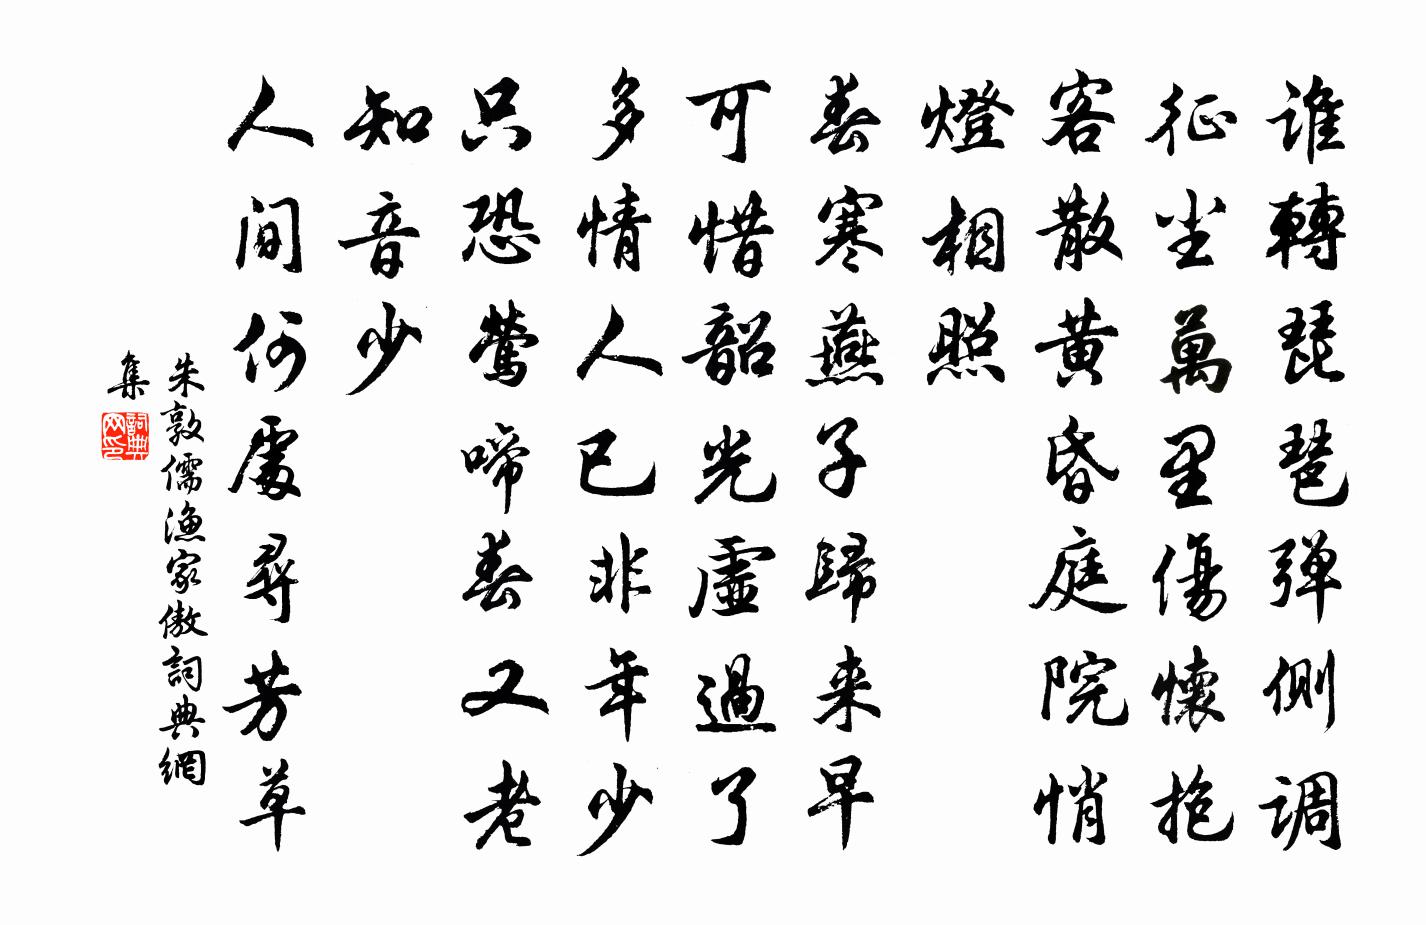 谁轉琵琶弹側调
征尘萬里傷懷抱
客散黄昏庭院悄
燈相照
春寒燕子歸来早
可惜韶光虚過了
多情人已非年少
只恐鶯啼春又老
知音少
人间何處尋芳草
朱敦儒渔家傲詞典網
集
詞典网印